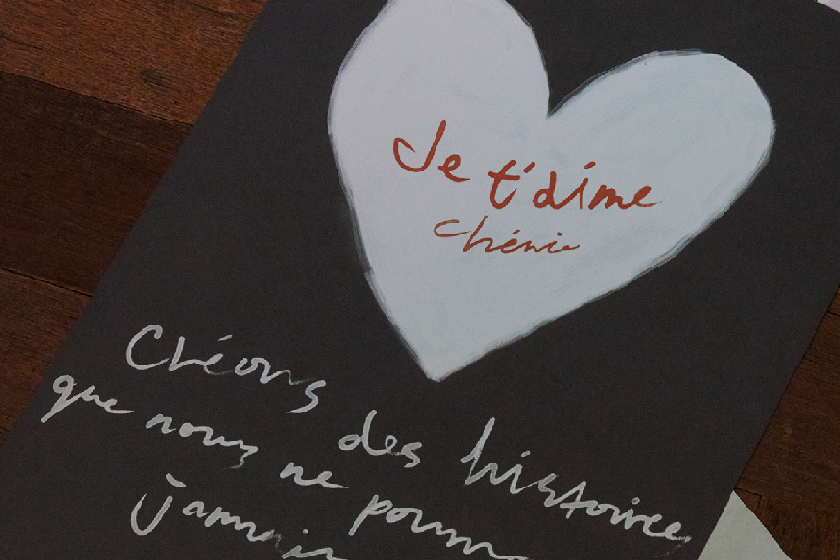 Je t'aime
chérie
Créons des histoires
que nous ne pourr
jamais